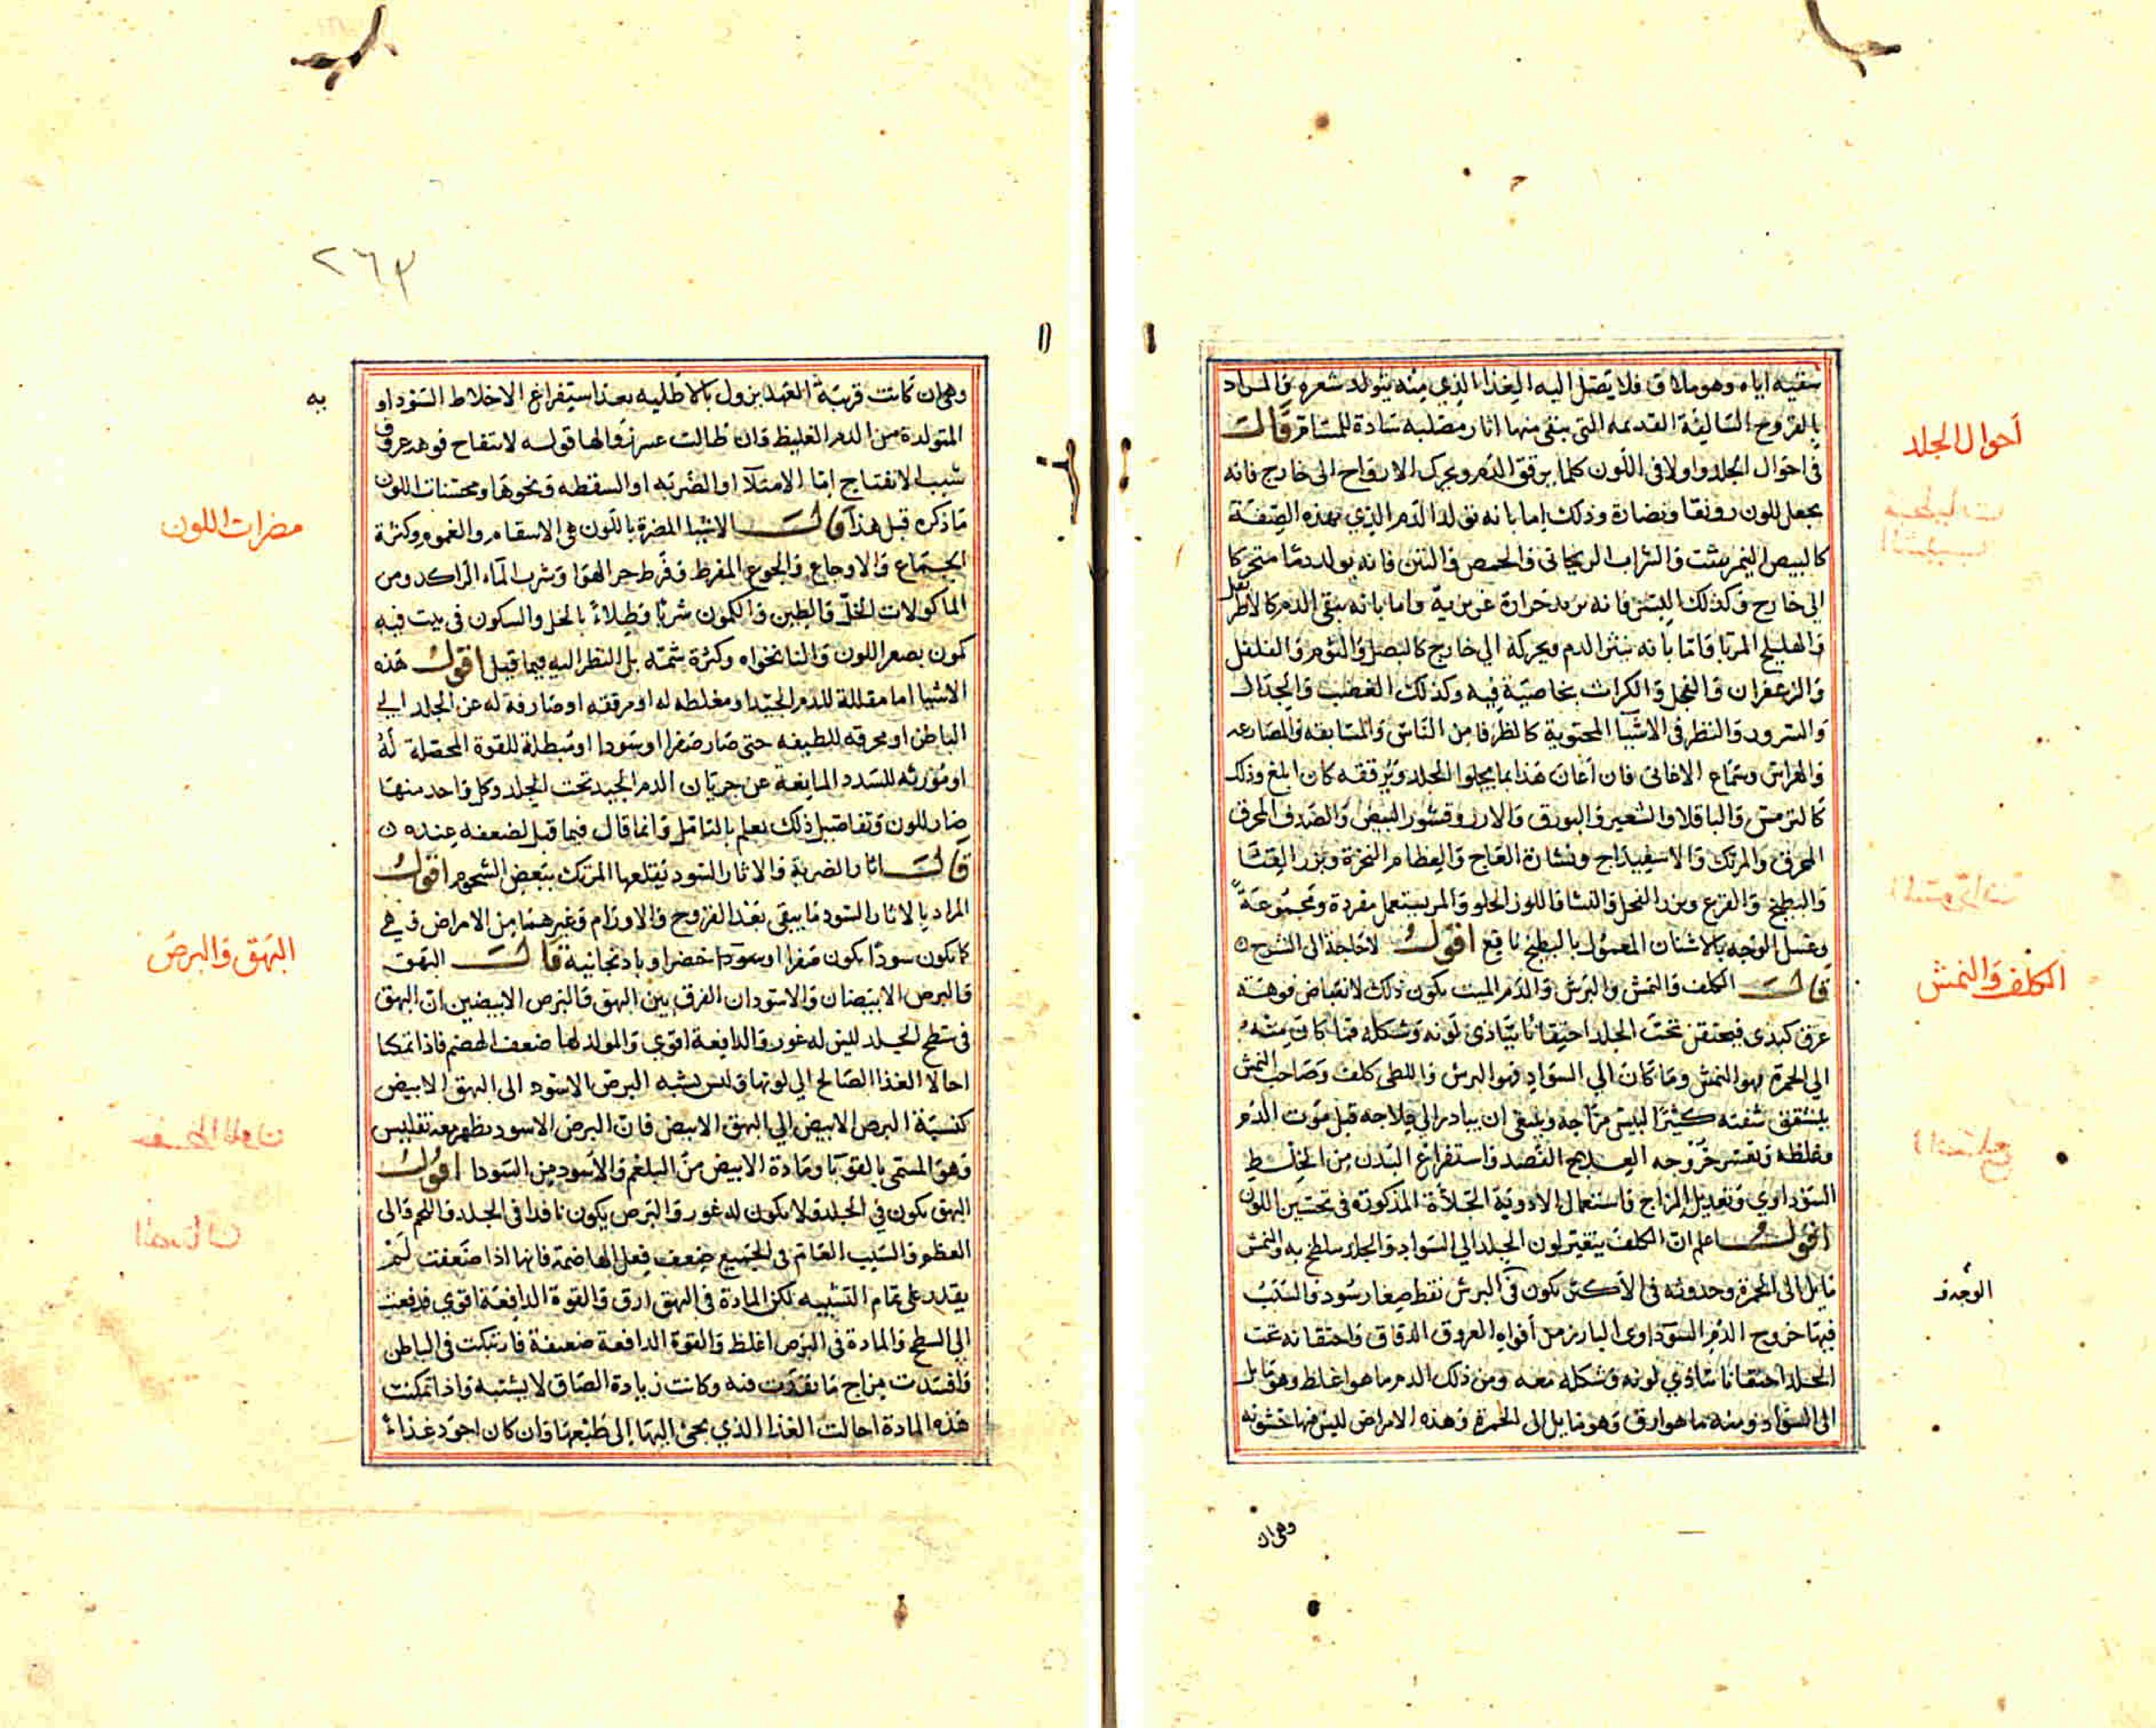 سقيه اياه وهو ملاق فلا يصل اليه الغذا الذي منه يتولد شعره والمراد
بالقروح السالفة القديمه التي يبقى منها اثار مصلبه سادة للمسام قالـــ
في احوال الجلد واولا في اللون كلما يرقق الدم ويحرك الارواح الى خارج فانه
يجعل للون رونقا ونضارة وذلك اما بانه تولد الدم الذي بهذه الصفة
كالبيض النيمرشت والشراب الريحاني والحمص والتين فانه يولد دما متحركا
الى خارج وكذلك اللبن فانه يزيد حرارة غريزية واما بانه ينقي الدم كالاطريفل
والهليلج المربا واما بانه ينشر الدم ويحركه الي خارج كالبصل والثوم والفلفل
والزعفران والفجل والكراث بخاصية فيه وكذلك الغضب والجدال
والسرور والنظر في الاشيا المحبوبة كالظرفا من الناس والمسابقه والمصارعه
والهراش وسماع الاغاني فان اعان هذا بما يجلوا الجلد ويرققه كان ابلغ وذلك
كالترمس والباقلا والشعير والبورق والارز وقشور البيض والصدف المحرق
المحرق والمرتك والاسفيداج ونشارة العاج والعظام النخرة وبزر القثا
والبطيخ والقرع وبزر الفجل والنشا واللوز الحلو والمر يستعمل مفردة ومجموعة
وغسل الوجه بالاشنان المعمول بالبطيخ نافع اقولـــ لا حاجة الى الشرح
قالـــ الكلف والنمش والبرش والدم الميت يكون ذلك لانقباض فوهة
عرق كبدي فيحتقن تحت الجلد احتقانا يتاذى لونه وشكله فما كان منه
الي الحمرة فهو النمش وما كان الي السواد فهو البرش واللطي كلف وصاحب النمش
يتشقق شفته كثيرا ليبس مزاجه وينبغي ان يبادر الي علاجه قبل موت الدم
وغلظه وتعسر خروجه العلاج الفصد واستفراغ البدن من الخلط
السوداوي وتعديل المزاج واستعمال الادوية الجلاءة المذكورة في تحسين اللون
اقولـــ اعلم ان الكلف يتغير لون الجلد الي السواد والجلد سلطح به والنمش
مايل الى الحمرة وحدوثه في الاكثر يكون في البرش نقط صغار سود والسبب
فيها خروج الدم السوداوى البارز من أفواه العروق الدقاق واحتقانه تحت
الجلد احتقانا يتاذي لونه وشكله معه ومن ذلك الدم ما هو اغلظ وهو مايل
الى السواد ومنه ما هو ارق وهو مايل الى الحمرة وهذه الامراض ليس فيها خشونه
أحوال الجلد
الكلف والنمش
الوجه
وهى ان
٢٦٣
وهى ان كانت قريبة العهد يزول بالاطليه بعد استفراغ الاخلاط السوداو
يه
المتولدة من الدم الغليظ وان طالت عسر زوالها قوله لانتفاخ فوهه عروق
سبب الانفتاح اما الامتلآ او الضربه او السقطه ونحوها ومحسنات اللون
ما ذكره قبل هذا قالـــ الاشيا المضرة باللون هى الاسقام والغموم وكثرة
الجماع والاوجاع والجوع المفرط وفرط حر الهوا وشرب الماء الراكد ومن
الماكولات الخل والطين والكمون شربا وطلاءً بالخل والسكون في بيت فيه
كمون يصفر اللون والنانخواه وكثرة شمه بل النظر اليه فيما قيل اقولـــ هذه
الاشيا اما مقللة للدم الجيد او مغلظه له او مرققه او صارفة له عن الجلد الي
الباطن او محرقه للطيفه حتى صار صفرا او سودا او مبطلة للقوة المحصلة له
او مورثه للسدد المانعة عن جريان الدم الجيد تحت الجلد وكل واحد منها
ضار للون وتفاصيل ذلك يعلم بالتامل وانما قال فيما قيل لضعفه عنده
قالـــ اثار الضربة والاثار السود يقلعها المرتك ببعض الشحوم اقولـــ
المراد بالاثار السود ما يبقى بعد القروح والاورام وغيرهما من الامراض وهي
كما تكون سودا تكون صفرا او سودا خضرا وباذنجانية قالـــ البهق
والبرص الابيضان والاسودان الفرق بين البهق والبرص الابيضين ان البهق
في سطح الجلد ليس له غور والدافعة اقوى والمولد لها ضعف الهضم فاذا تمكنا
احالا الغذا الصالح الي لونهما وليس نسبه البرص الاسود الى البهق الابيض
كنسبة البرص الابيض الي البهق الابيض فان البرص الاسود يظهر معه تفليس
وهو المسمى بالقوبا ومادة الابيض من البلغم والاسود من السودا اقولـــ
البهق يكون في الجلد ولا يكون له غور والبرص يكون نافدا في الجلد واللحم والى
العظم والسبب العام في الجميع ضعف فعل الهاضمة فانها اذا ضعفت لم
يقدر على تمام التشبيه لكن المادة في البهق ارق والقوة الدافعة اقوي فدفعت
الي السطح والمادة في البرص اغلظ والقوة الدافعة ضعيفة فارتبكت في الباطن
وافسدت مزاج ما نفذت فيه وكانت زيادة الصاق لا يشبه واذا تمكنت
هذه المادة احالت الغذا الذي يجئ اليها الى طبيعتها وان كان اجود غذاء
مضرات اللون
البهق والبرص